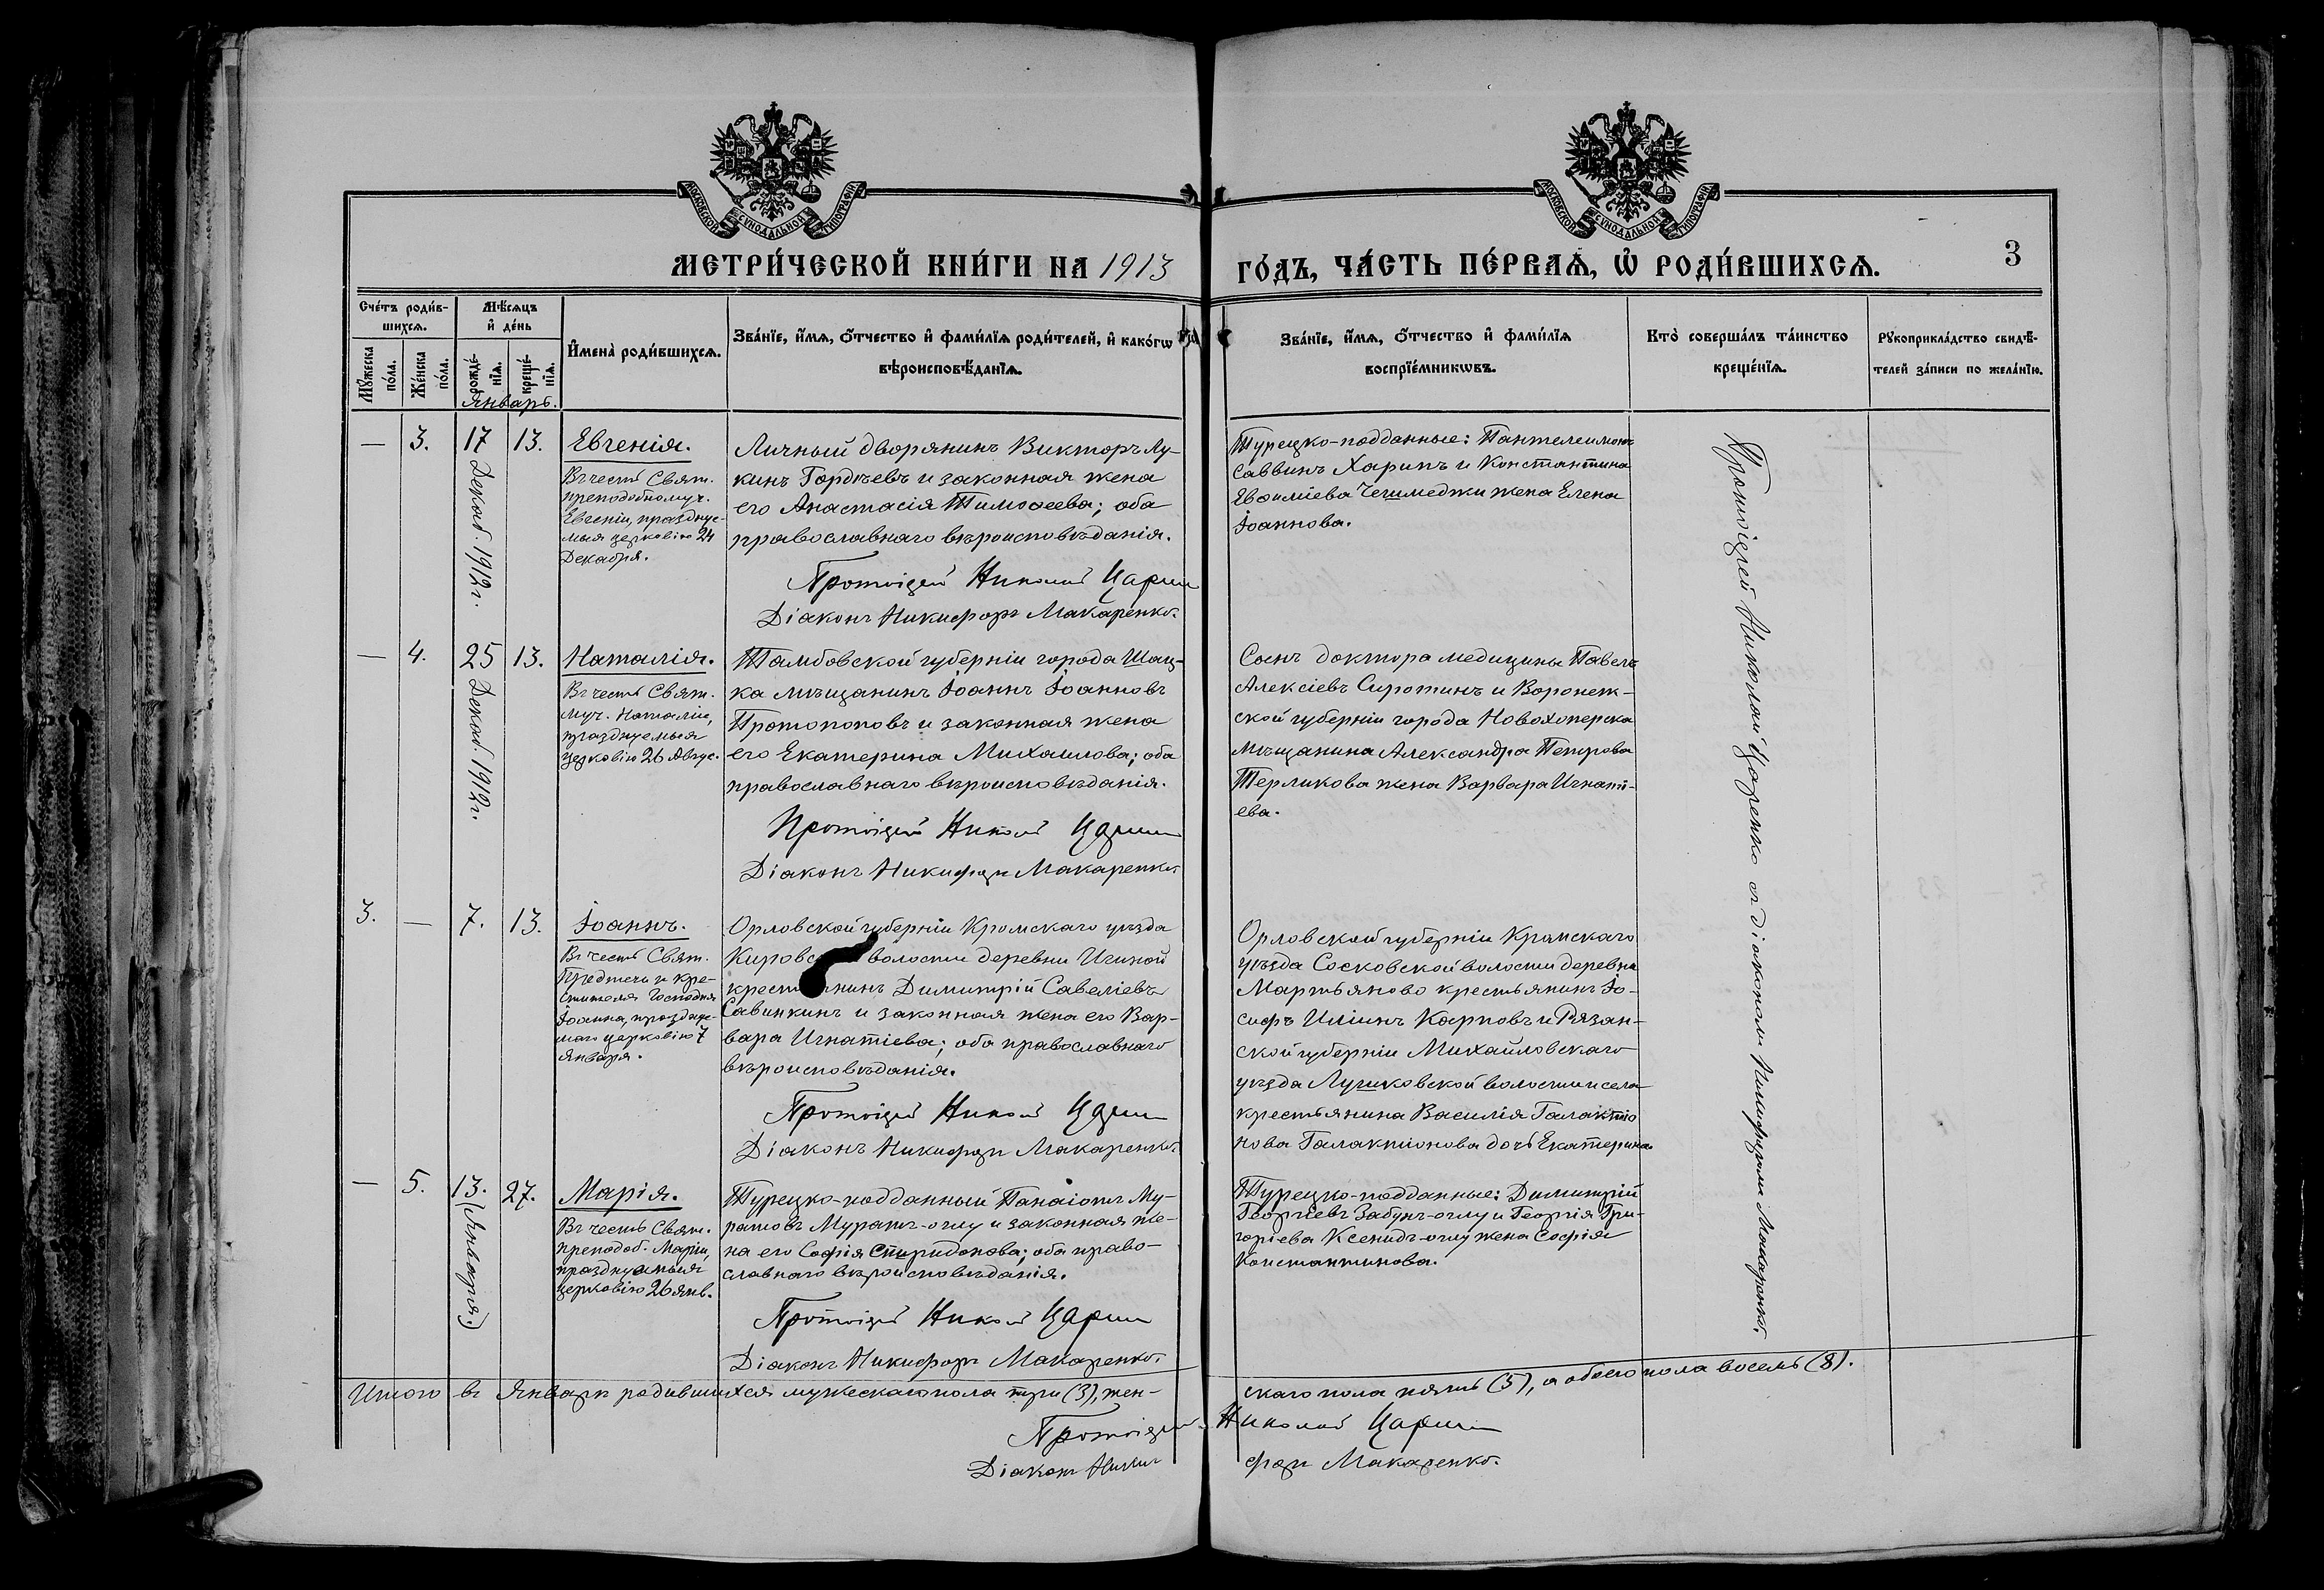 МОСКОВСКОЙ СѴНОДАЛЬНОЙ ТИПОГРАФІИ
МОСКОВСКОЙ СѴНОДАЛЬНОЙ ТИПОГРАФІИ
МЕТРИ́ЧЕСКОЙ КНИ́ГИ НА 1913
ГО́ДЪ, ЧА́СТЬ ПЕ́РВАѦ, Ѡ҆ РОДИ́ВШИХСѦ.
3
Сче́тъ роди́в-
шихсѧ.
Мꙋ́жеска
по́ла.
Же́нска
по́ла.
Мѣ́сѧцъ
и҆ де́нь
рожде́-
нїѧ.
креще́-
нїѧ.
Январь.
И҆мена̀ роди́вшихсѧ.
Зва́нїе, и҆́мѧ, ѻ҆́тчество и҆ фами́лїѧ роди́телей, и҆ како́гѡ
вѣроисповѣ́данїѧ.
Зва́нїе, и҆́мѧ, ѻ҆́тчество и҆ фами́лїѧ
воспрїе́мникѡвъ.
Кто̀ соверша́лъ та́инство
креще́нїѧ.
Рꙋкоприкла́дство свидѣ́-
телей за́писи по жела́нїю.
— 3. 17 13. Евгенія.
Декаб. 1912 г.
Въ честь Свят.
преподобномуч.
Евгеніи, праздну-
мыя церковію 24
Декабря.
Личный дворянинъ Викторъ Лу-
кинъ Гордѣевъ и законная жена
его Анастасія Тимоѳеева; оба
православнаго вѣроисповѣданія.
Протоіерей Николай Царенко
Діаконъ Никифоръ Макаренко.
Турецко-подданные: Пантелеимонъ
Саввинъ Харипъ и Константина
Евѳиміева Чешмеджи жена Елена
Іоаннова.
Протоіерей Николай Царенко съ діакономъ Никифоромъ Макаренко.
— 4. 25 13. Наталія.
Декаб. 1912 г.
Въ честь Свят.
муч. Наталіи,
празднуемыя
церковію 26 Авгус.
Тамбовской губерніи города Шац-
ка мѣщанинъ Іоаннъ Іоанновъ
Протопоповъ и законная жена
его Екатерина Михаилова; оба
православнаго вѣроисповѣданія.
Протоіерей Николай Царенко
Діаконъ Никифоръ Макаренко.
Сынъ доктора медицины Павелъ
Алексіевъ Сиротинъ и Воронеж-
ской губерніи города Новохоперска
мѣщанина Александра Петрова
Терликова жена Варвара Игнаті-
ева.
3. — 7. 13. Іоаннъ.
Въ честь Свят.
Предтечи и Кре-
стителя Господня
Іоанна, праздуе-
маго церковію 7
Января.
Орловской губерніи Кромскаго уѣзда
волости деревни Игиной
Димитрій Савеліевъ
Савинкинъ и законная жена его Вар-
вара Игнатіева; оба православнаго
вѣроисповѣданія.
Протоіерей Николай Царенко
Діаконъ Никифоръ Макаренко.
Орловской губерніи Кромскаго
уѣзда Сосковской волости деревни
Мартьяново крестьянинъ Іо-
сифъ Иліинъ Карповъ и Рязан-
ской губерніи Михайловскаго
уѣзда Лушковской волости и села
крестьянина Василія Галактіо
нова Галактіонова дочь Екатерина.
— 5. 13. 27. Марія.
(Января.)
Въ честь Свят.
преподоб. Маріи,
празднуемыя
церковію 26 янв.
Турецко-подданный Панаіотъ Му-
ратовъ Муратъ-оглу и законная же-
на его Софія Спиридонова; оба право-
славнаго вѣроисповѣданія.
Протоіерей Николай Царенко
Діаконъ Никифоръ Макаренко.
Турецко-подданные: Димитрій
Георгіевъ Забунъ-оглу и Георгія Гри-
горіева Ксенидъ-оглу жена Софія
Константинова.
Итого въ Январѣ родившихся мужескаго пола три (3), жен-
скаго пола пять (5), а обоего пола восемь (8).
Протоіерей Николай Царенко
Діаконъ Никифоръ Макаренко.